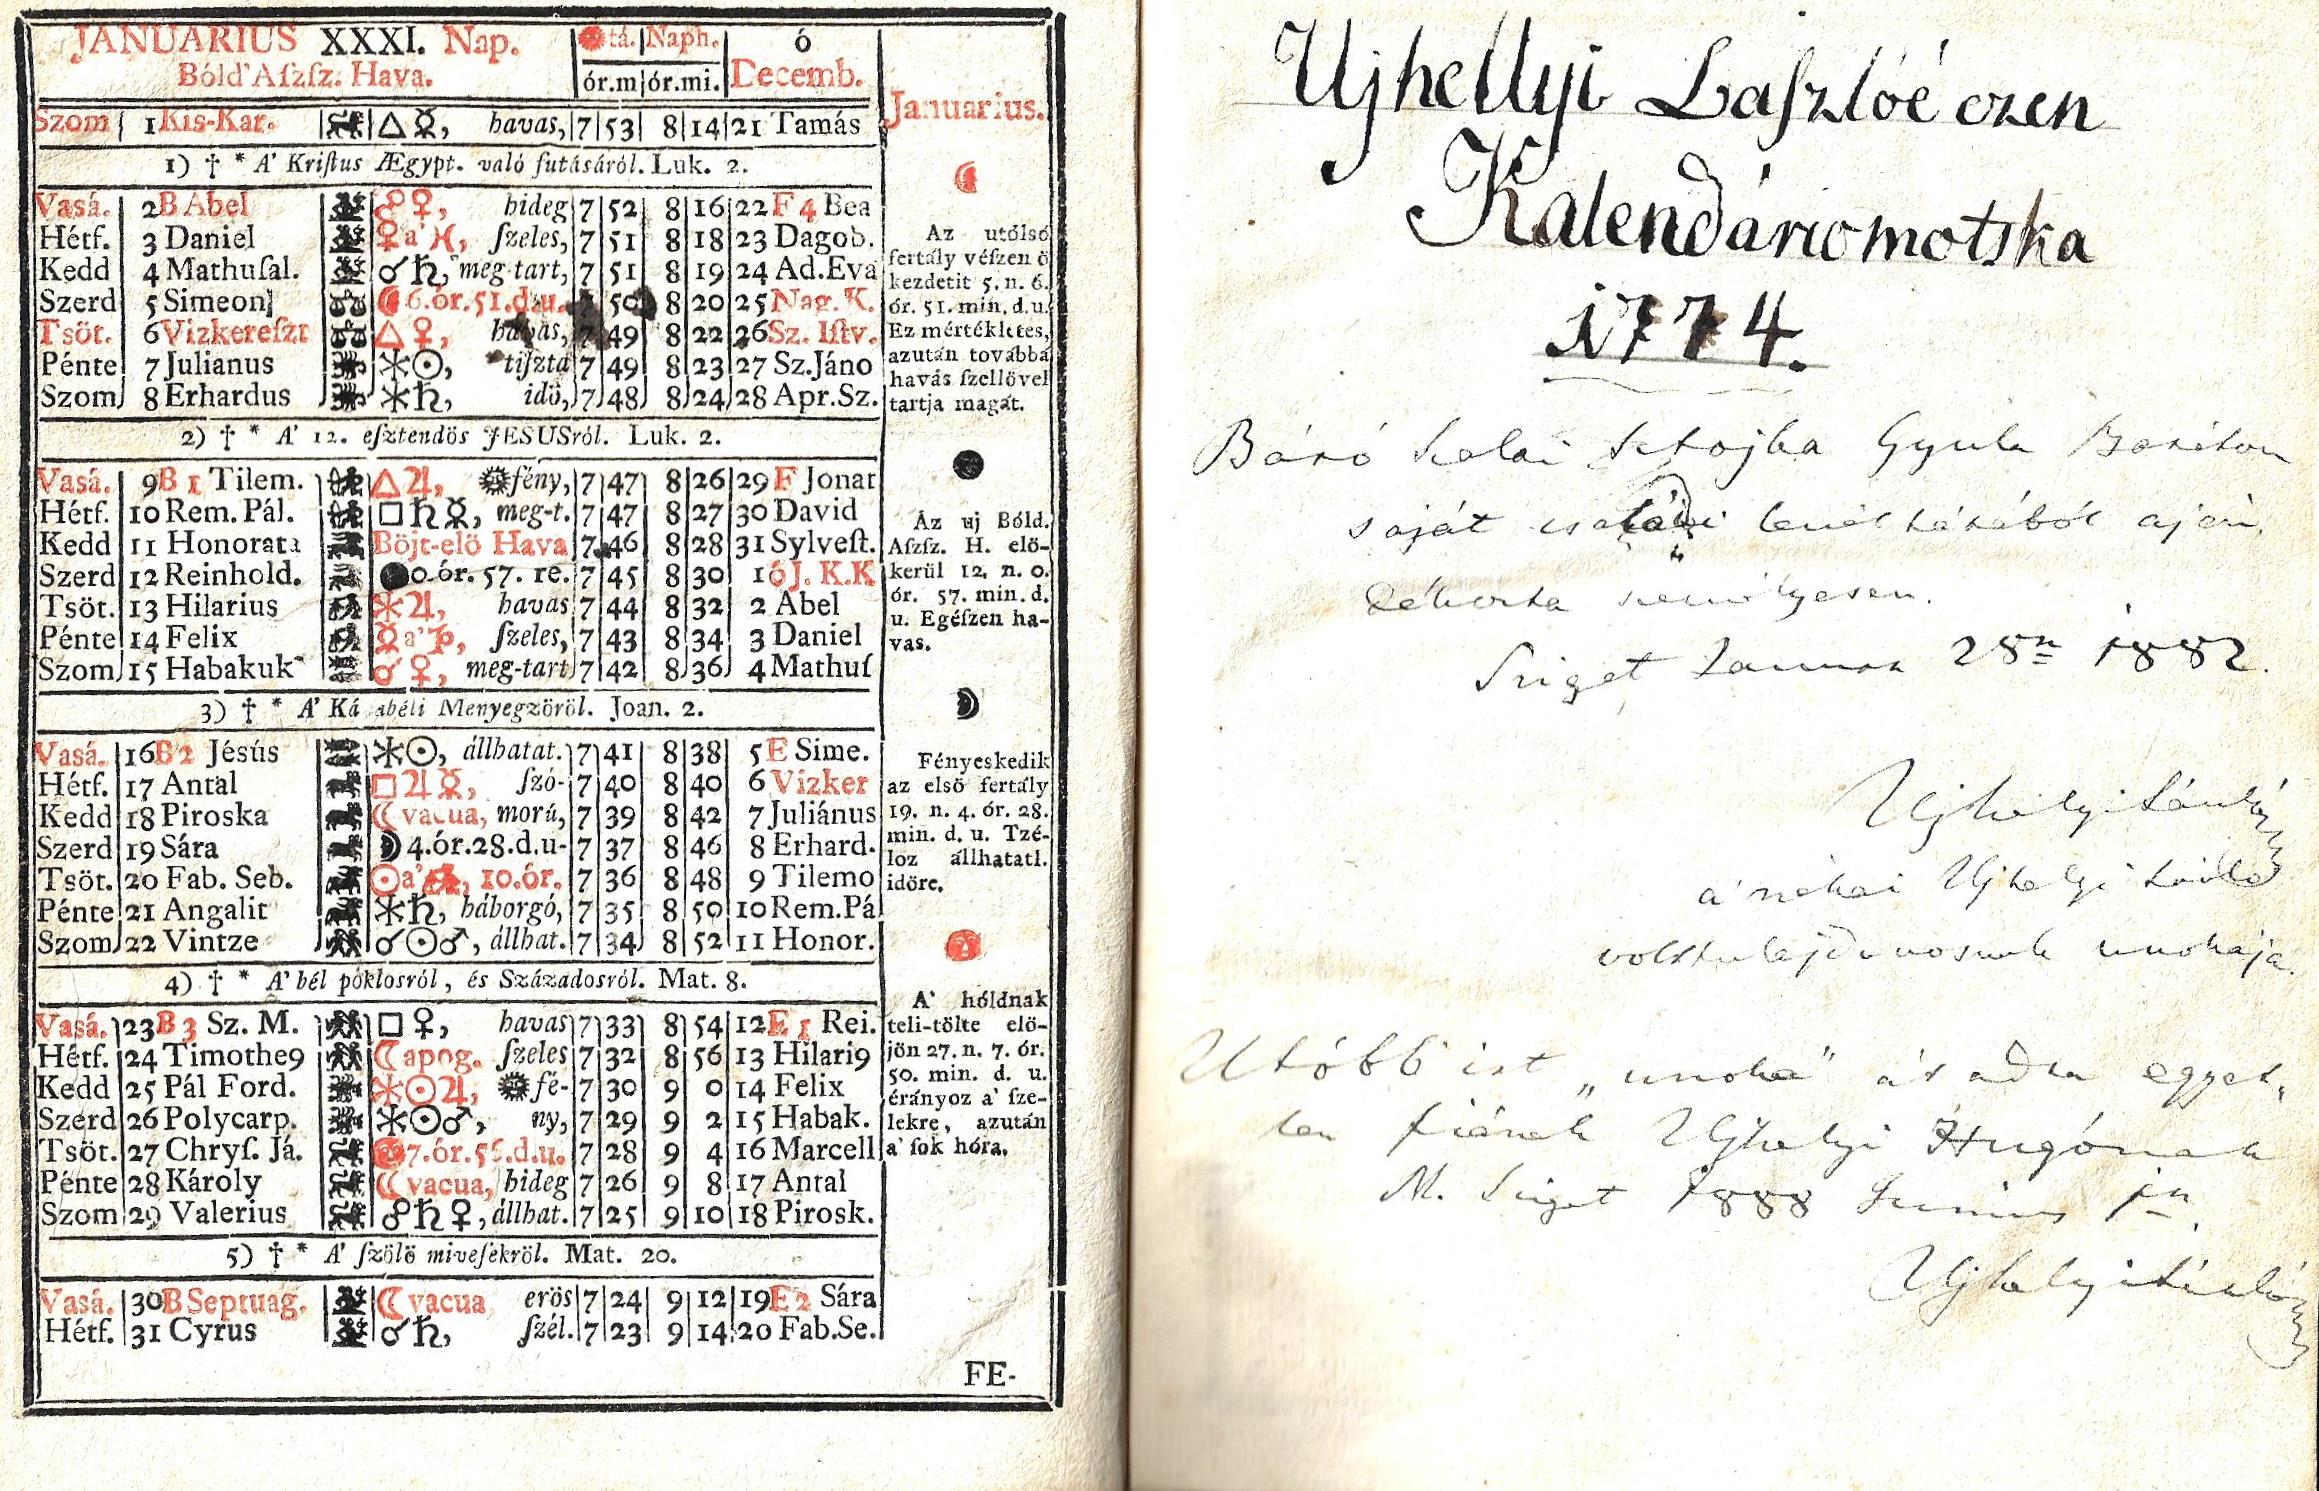 JANUARIUS XXXI. Nap.
Bóld'Aſzſz. Hava.
tá. Naph.
ór.m ór.mi.
ó
Decemb.
Szom 1 Kis-Kar. △☿, havas, 7 53 8 14 21 Tamás
1) † * A' Kriſtus Ægypt. való futásáról. Luk. 2.
Vasá. 2 B Abel ☍♀, hideg 7 52 8 16 22 F 4 Bea
Hétf. 3 Daniel ♀a'♓, ſzeles, 7 51 8 18 23 Dagob.
Kedd 4 Mathuſal. ☌♄, meg-tart, 7 51 8 19 24 Ad.Eva
Szerd 5 Simeon 6.ór.51.d.u. 50 8 20 25 Nag. K.
Tsöt. 6 Vizkereſzt △♀, havas, 7 49 8 22 26 Sz. Iſtv.
Pénte 7 Julianus ⚹☉, tiſzta 7 49 8 23 27 Sz.Jáno
Szom 8 Erhardus ⚹♄, idö, 7 48 8 24 28 Apr.Sz.
2) † * A' 12. eſztendös JESUSról. Luk. 2.
Vasá. 9 B 1 Tilem. △♃, fény, 7 47 8 26 29 F Jonat
Hétf. 10 Rem. Pál. □♄☿, meg-t. 7 47 8 27 30 David
Kedd 11 Honorata Böjt-elö Hava 7 46 8 28 31 Sylveſt.
Szerd 12 Reinhold. ●0.ór.57. re. 7 45 8 30 1 ó J. K.K
Tsöt. 13 Hilarius ⚹♃, havas 7 44 8 32 2 Abel
Pénte 14 Felix ☿a'♑, ſzeles, 7 43 8 34 3 Daniel
Szom 15 Habakuk ☌♀, meg-tart 7 42 8 36 4 Mathuſ
3) † * A' Ká abéli Menyegzöröl. Joan. 2.
Vasá. 16 B 2 Jésús ⚹☉, állhatat. 7 41 8 38 5 E Sime.
Hétf. 17 Antal □♃☿, ſzó- 7 40 8 40 6 Vizker
Kedd 18 Piroska ☾ vacua, morú, 7 39 8 42 7 Juliánus
Szerd 19 Sára ☽4.ór.28.d.u- 7 37 8 46 8 Erhard.
Tsöt. 20 Fab. Seb. ☉a'♒, 10.ór. 7 36 8 48 9 Tilemo
Pénte 21 Angalit ⚹♄, háborgó, 7 35 8 50 10 Rem.Pá
Szom 22 Vintze ☌☉♂, állhat. 7 34 8 52 11 Honor.
4) † * A' bél poklosról, és Századosról. Mat. 8.
Vasá. 23 B 3 Sz. M. □♀, havas 7 33 8 54 12 E 1 Rei.
Hétf. 24 Timothe9 ☾apog. ſzeles 7 32 8 56 13 Hilari9
Kedd 25 Pál Ford. ⚹☉♃, fé- 7 30 9 0 14 Felix
Szerd 26 Polycarp. ⚹☉♂, ny, 7 29 9 2 15 Habak.
Tsöt. 27 Chryſ. Já. 7.ór.56.d.u. 7 28 9 4 16 Marcell
Pénte 28 Károly ☾vacua, hideg 7 26 9 8 17 Antal
Szom 29 Valerius ☍♄♀, állhat. 7 25 9 10 18 Pirosk.
5) † * A' ſzölö miveſekröl. Mat. 20.
Vasá. 30 B Septuag. ☾vacua erös 7 24 9 12 19 E 2 Sára
Hétf. 31 Cyrus ☌♄, ſzél. 7 23 9 14 20 Fab.Se.
Januarius.
Az utólsó
fertály véſzen ö
kezdetit 5. n. 6.
ór. 51. min. d.u.
Ez mértékletes,
azután továbbá
havás ſzellövel
tartja magát.
Az uj Bóld.
Aſzſz. H. elö-
kerül 12. n. 0.
ór. 57. min. d.
u. Egéſzen ha-
vas.
Fényeskedik
az elsö fertály
19. n. 4. ór. 28.
min. d. u. Tzé-
loz állhatatl.
idöre.
A' hóldnak
teli-tölte elö-
jön 27. n. 7. ór.
50. min. d. u.
érányoz a' ſze-
lekre, azután
a' ſok hóra.
FE-
Ujhellyi Laſzlóé ezen
Kalendáriomotska
1774.
Báró Gyula
saját családi levéltárából aján
személyesen.
Sziget 28n 1882.
Ujhelyi
a néhai Ujhelyi
volt tulajdonosnak unokája.
Utóbb ist „unoka" átadta egyet,
len fiának Ujhelyi Hugónak
M. Sziget 1888 Junius 1n.
Ujhelyi